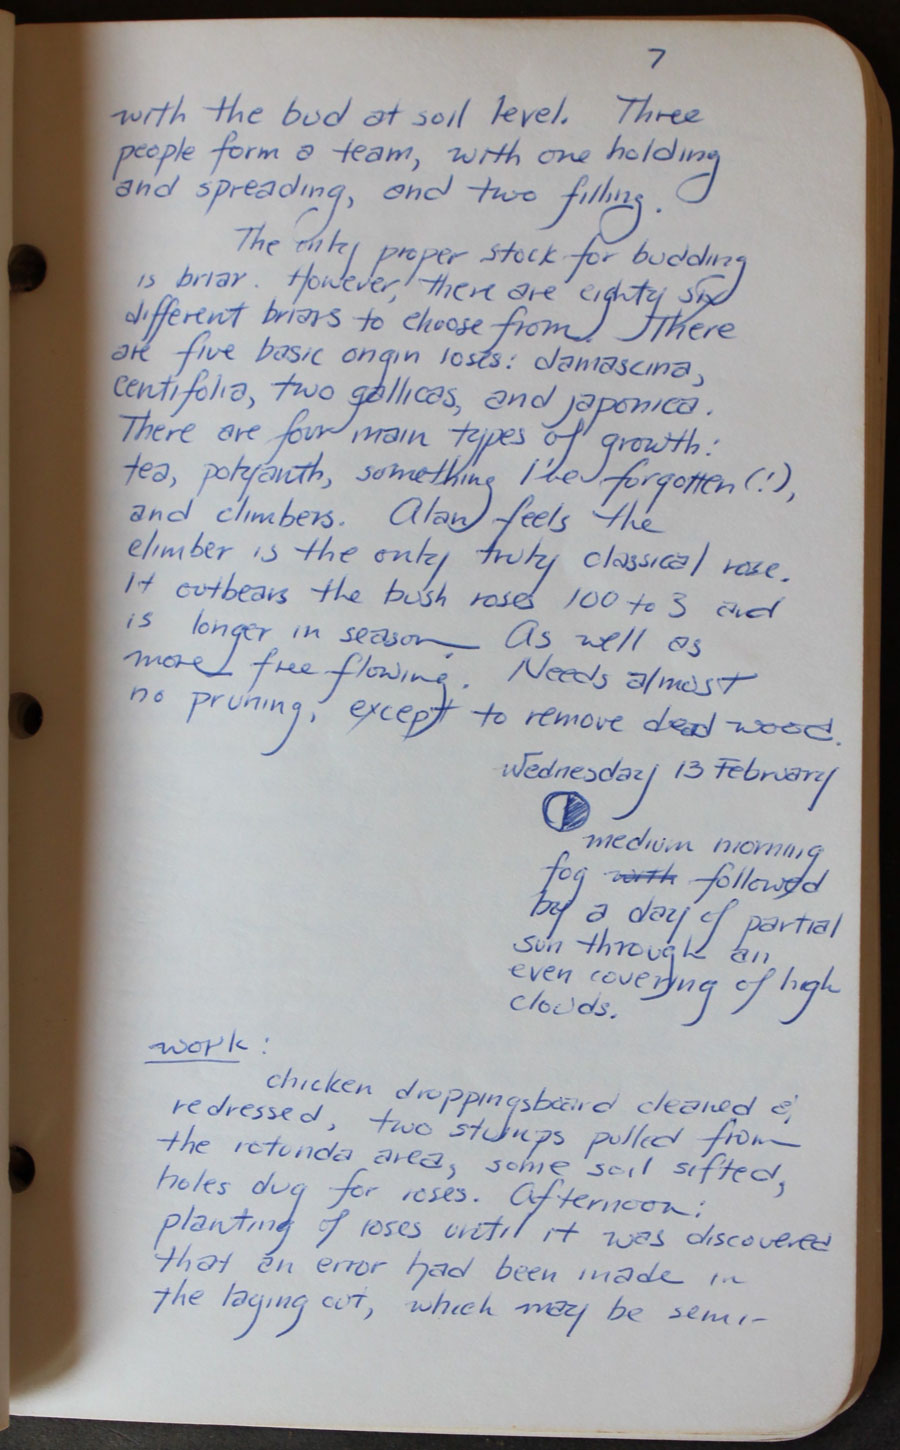 7
with the bud at soil level. Three
people form a team, with one holding
and spreading, and two filling.
The only proper stock for budding
is briar. However, there are eighty six
different briars to choose from. There
are five basic origin roses: damascina,
centifolia, two gallicas, and japonica.
There are four main types of growth:
tea, polyanth, something I've forgotten (!),
and climbers. Alan feels the
climber is the only truly classical rose.
It outbears the bush roses 100 to 3 and
is longer in season. As well as
more free flowing. Needs almost
no pruning, except to remove dead wood.
Wednesday 13 February
medium morning
fog with followed
by a day of partial
sun through an
even covering of high
clouds.
work:
chicken droppingsboard cleaned &
redressed, two stumps pulled from
the rotunda area, some soil sifted,
holes dug for roses. Afternoon:
planting of roses until it was discovered
that an error had been made in
the laying out, which may be semi-